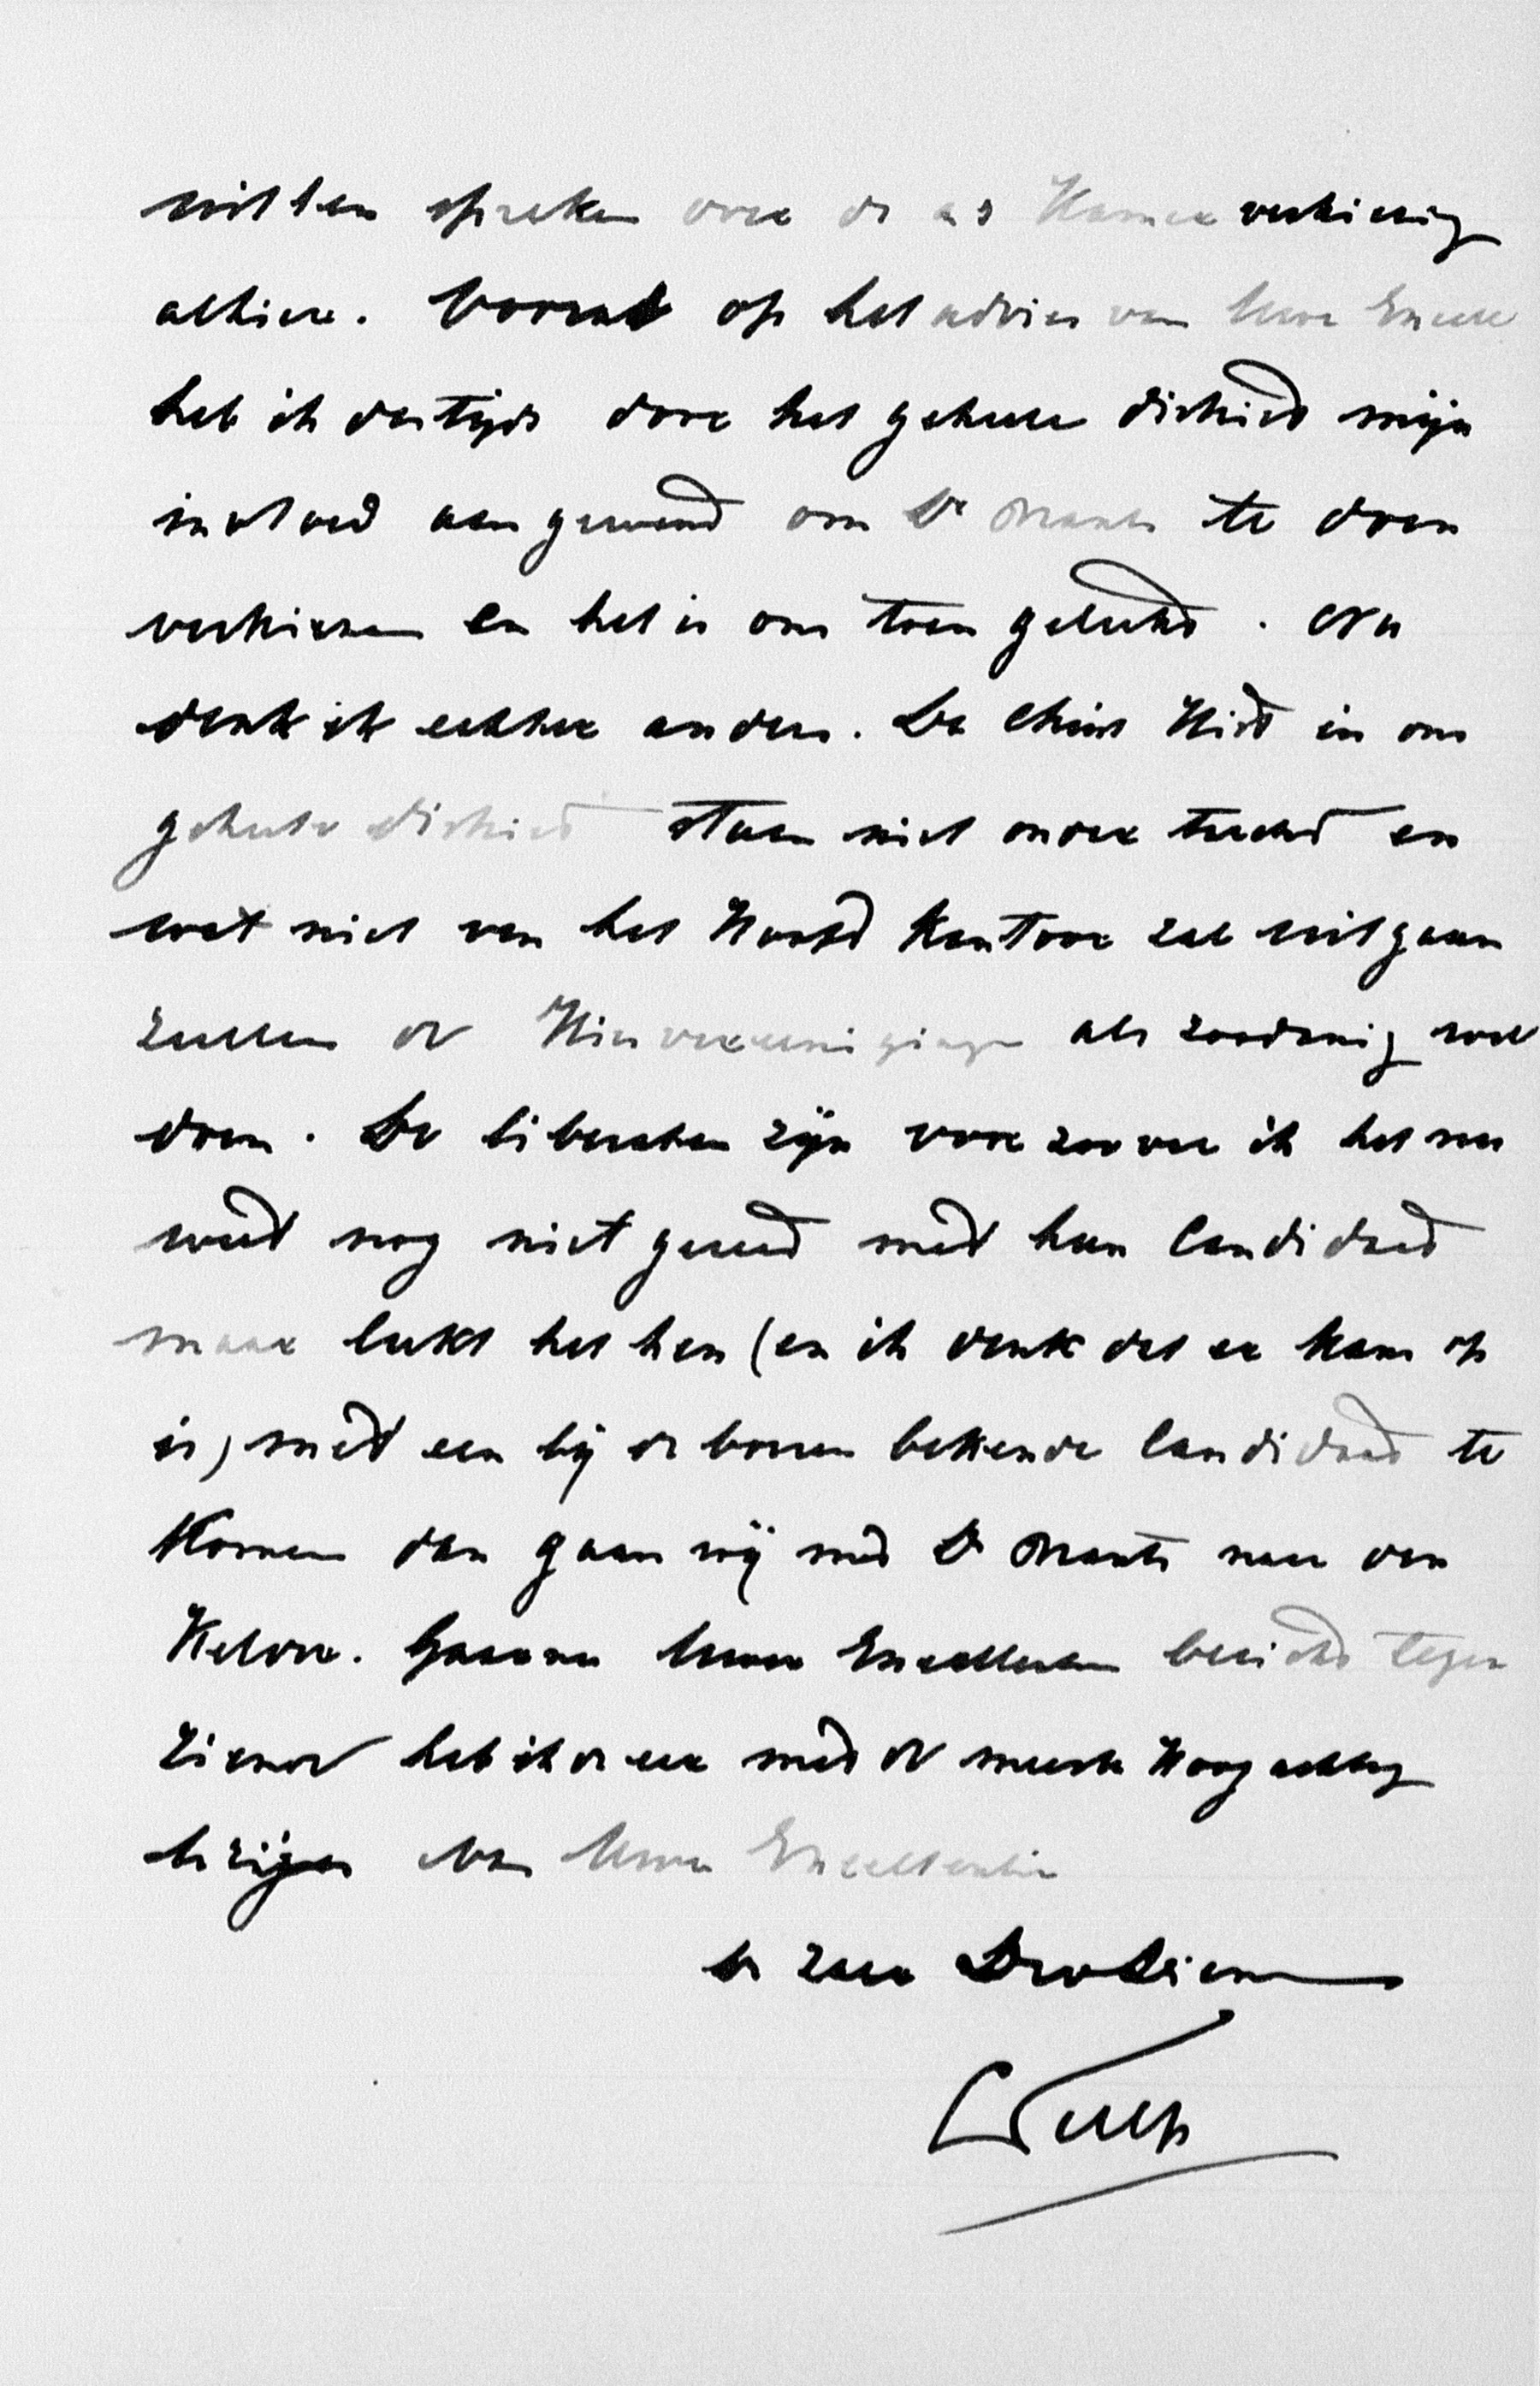 willen spreken over de a s Kamerverkiezing
alhier. Vooral op het advies van Uwe Excell
heb ik destijds door het geheele district mijn
invloed aangewend om Dr Nants te doen
verkiezen en het is ons toen gelukt. Nu
denk ik echter anders. De Christ Hist in ons
geheele district staan niet onder tucht en
wat niet van het Hoofd Kantoor zal uitgaan
zullen de Kiesvereenigingen als zoodanig wel
doen. De liberalen zijn voor zoover ik het nu
weet nog niet gereed met hun Candidaat
maar lukt het hen (en ik denk dat er kans op
is) met een bij de boeren bekende Candidaat te
Komen dan gaan wij met Dr Nants naar den
Kelder. Gaarne Uwer Excellentie bericht tegen
ziende heb ik de eer met de meeste Hoogachting
te zijn van Uwe Excellentie
de zeer Dw Dienr